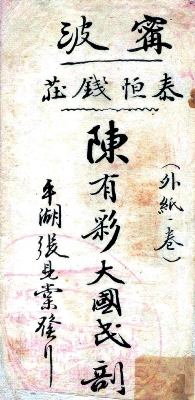 甯波
泰恒錢莊
(外紙一卷)
陳有彩大國民剖
平湖張見棠發